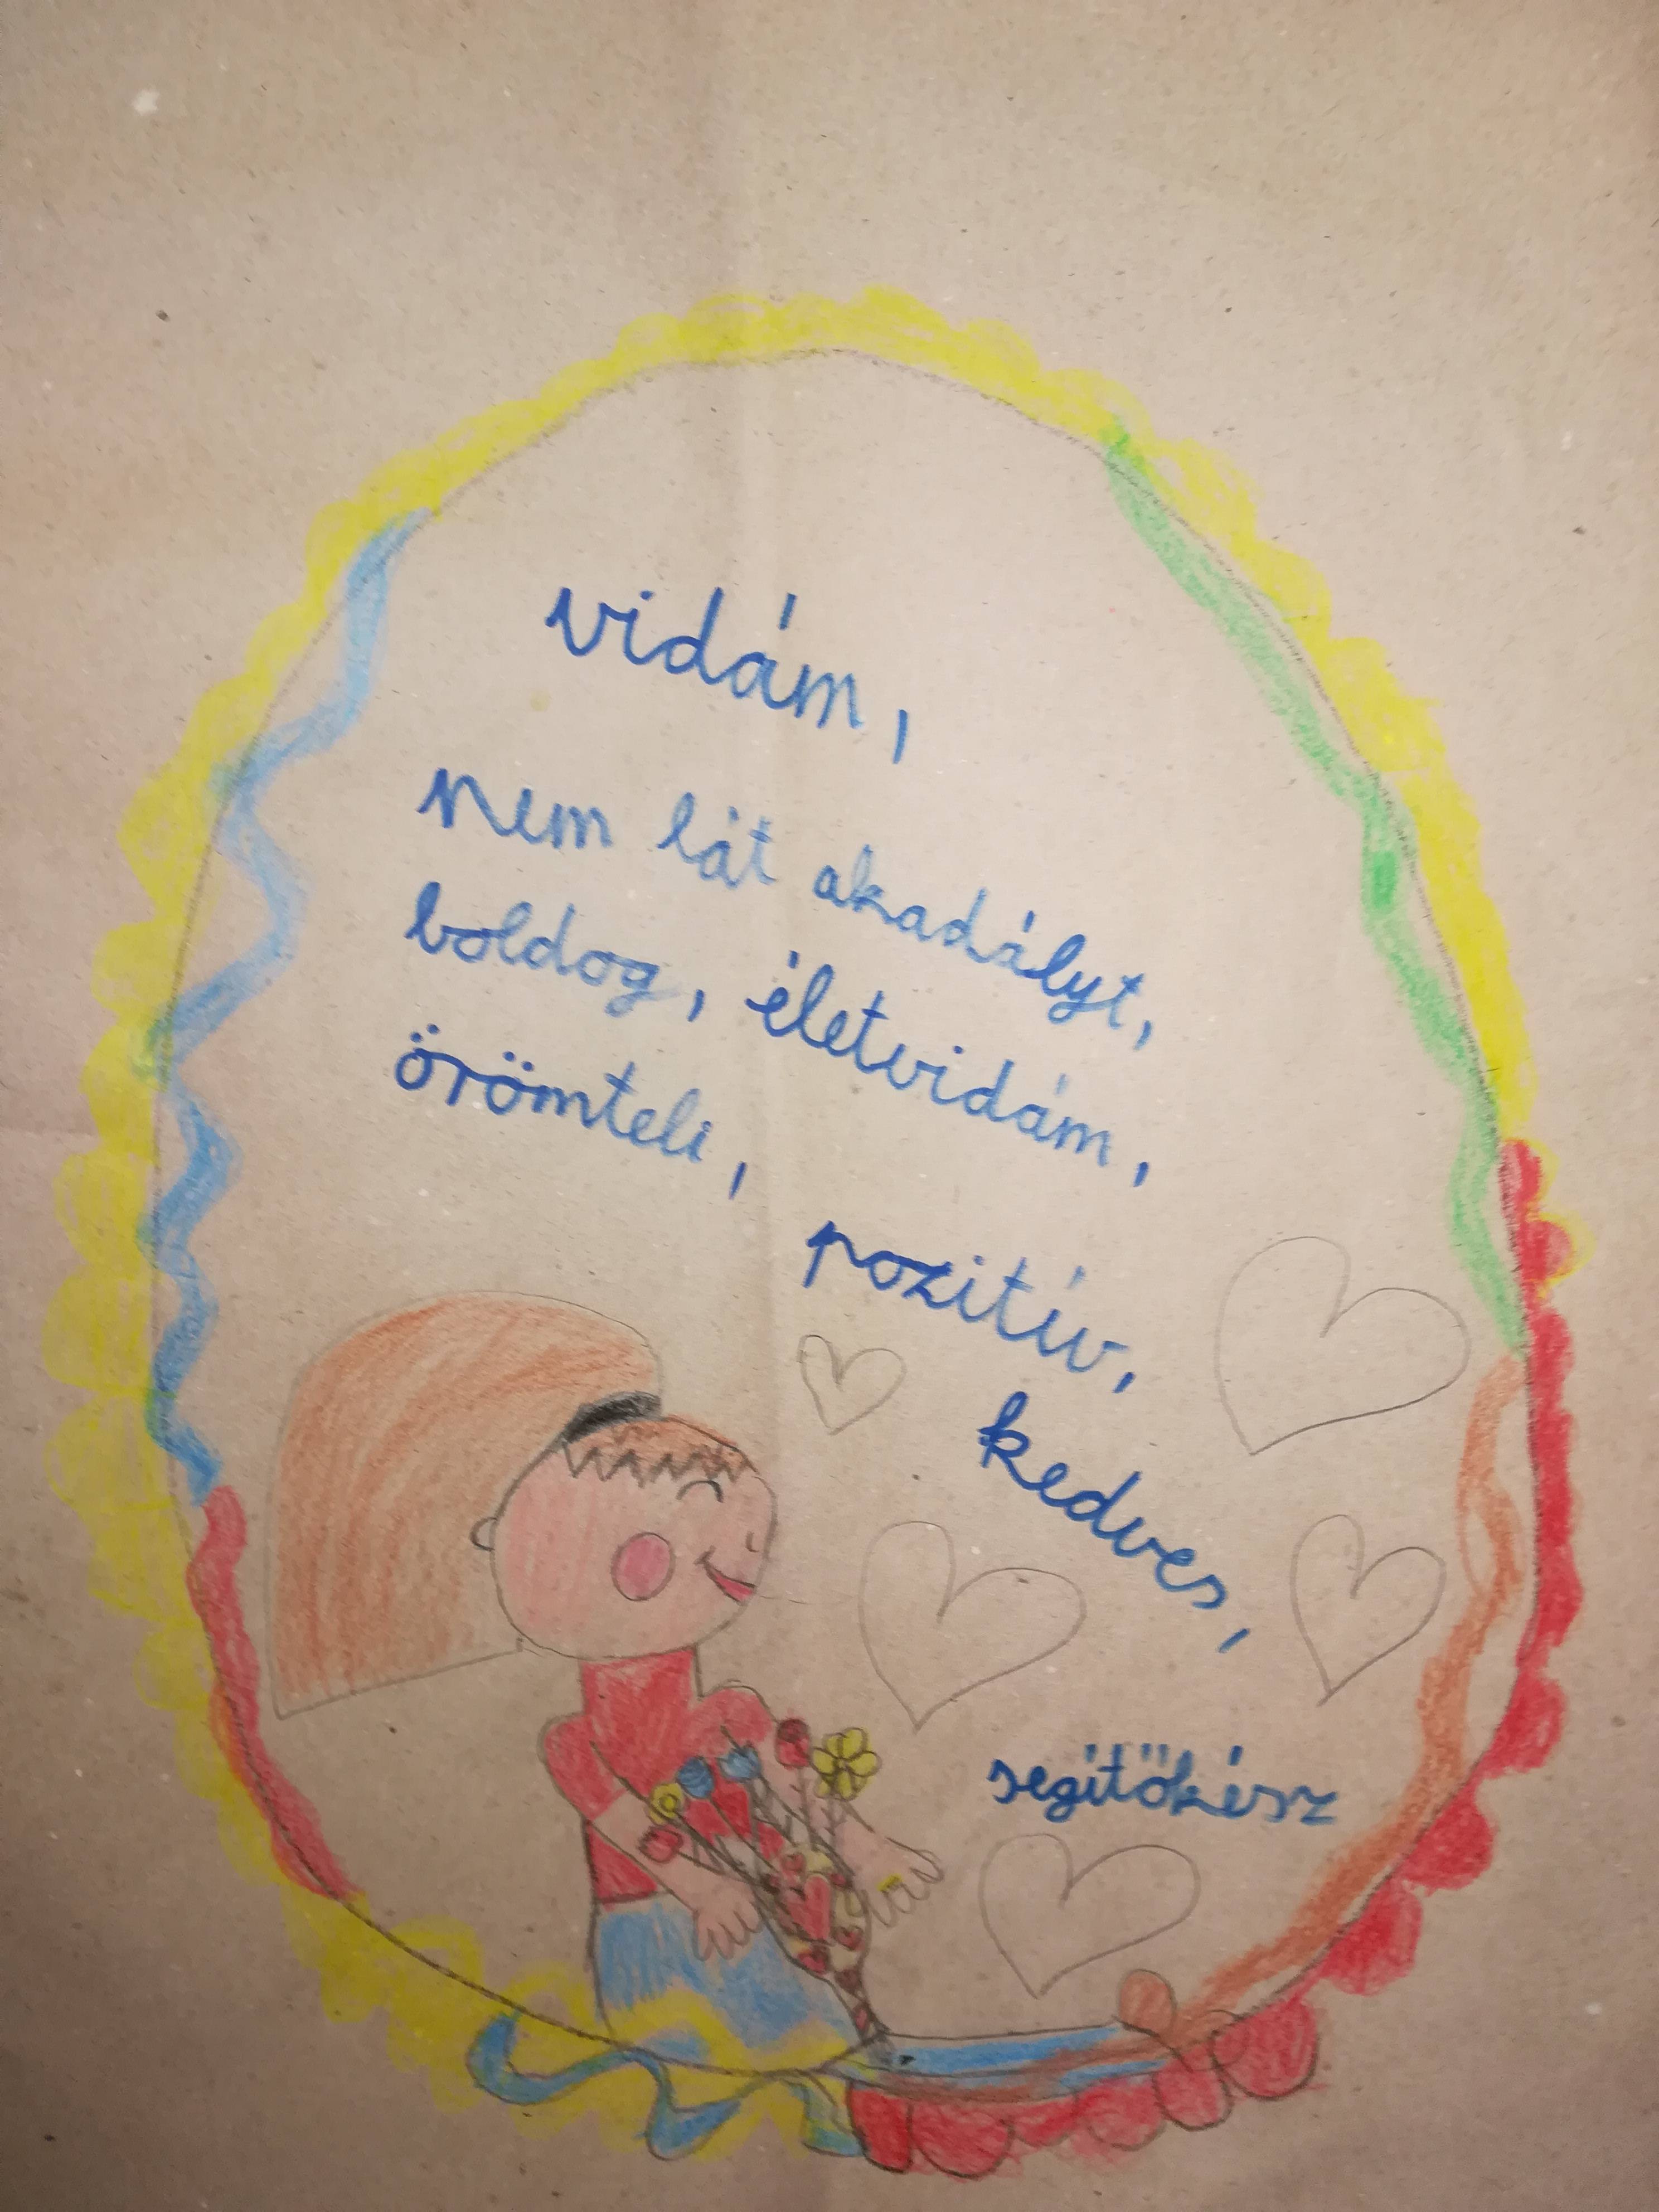 vidám,
nem lát akadályt,
boldog, életvidám,
örömteli,
pozitív,
kedves,
segítőkész